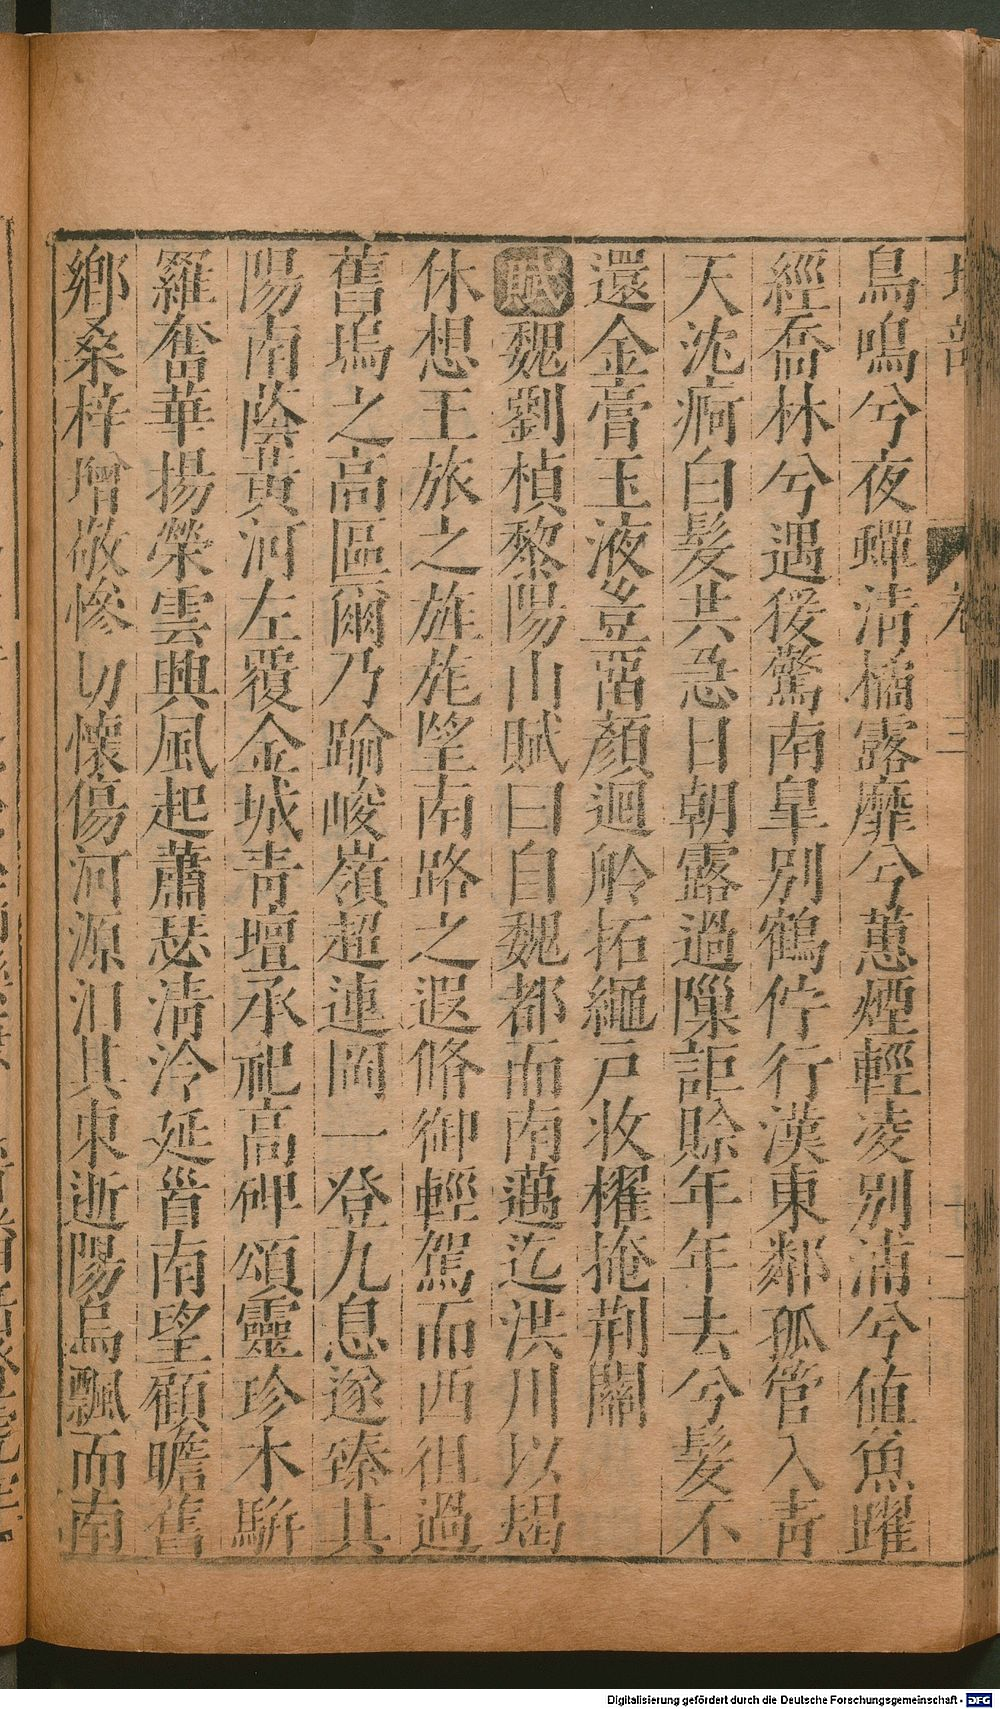 鳥鳴兮夜蟬清橘露靡兮蕙煙輕凌別浦兮値魚躍
經喬林兮遇猨驚南皐別鶴佇行漢東鄰孤管入青
天沈痾白髮共急日朝露過隟詎賒年年去兮髮不
還金膏玉液豈畱顏迴舲拓繩戸收櫂掩荆關
賦魏劉楨黎陽山賦曰自魏都而南邁迄洪川以朅
休想王旅之旌旄望南路之遐脩御輕駕而西徂過
舊塢之高區爾乃踰峻嶺超連岡一登九息遂臻其
陽南蔭黃河左覆金城青壇承祀高碑頌靈珍木駢
羅奮華揚榮雲興風起蕭瑟清泠延首南望顧瞻舊
鄉桑梓增敬慘切懷傷河源汨其東逝陽烏飄而南
Digitalisierung gefördert durch die Deutsche Forschungsgemeinschaft - DFG